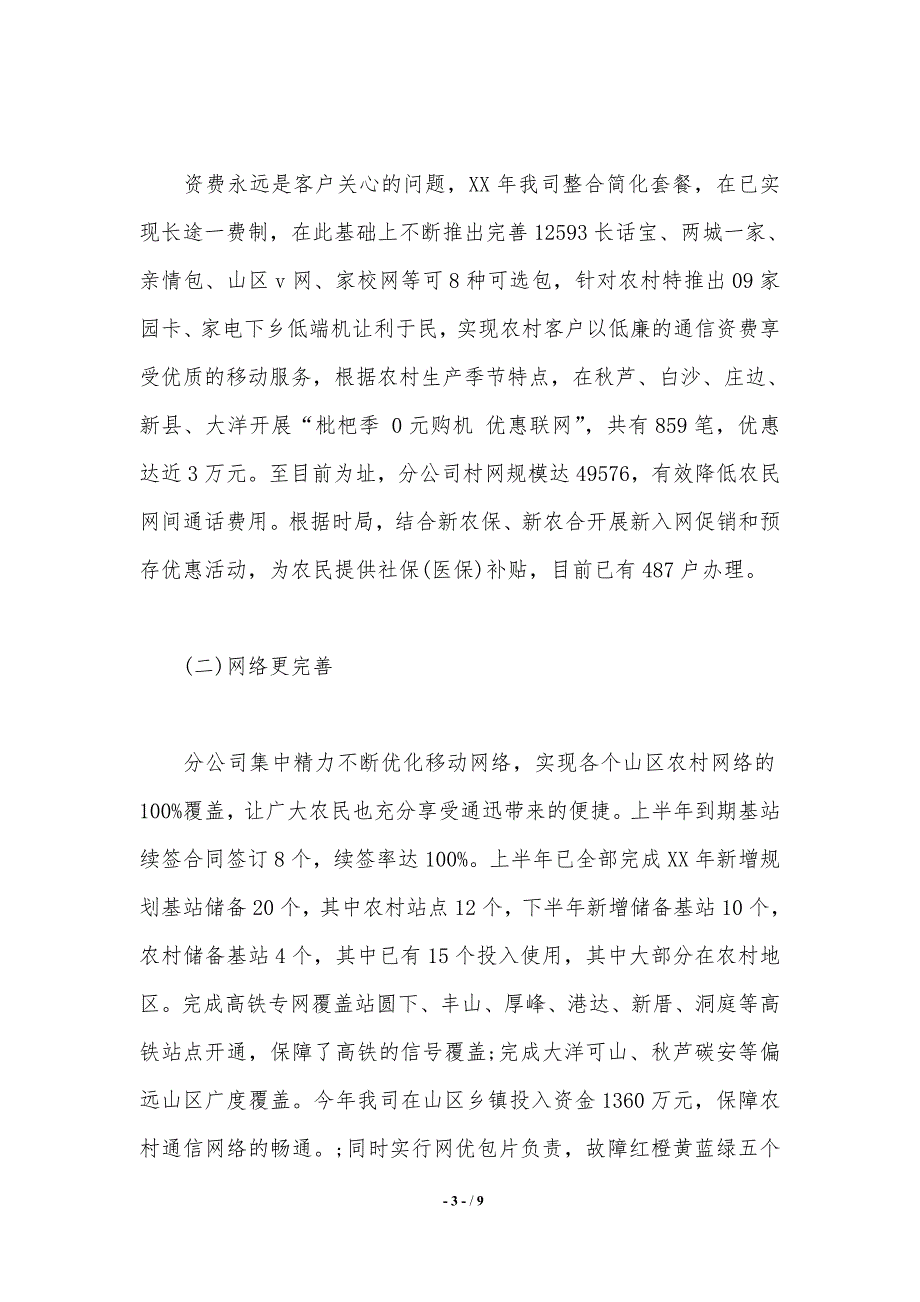 资费永远是客户关心的问题，XX 年我司整合简化套餐，在已实
现长途一费制，在此基础上不断推出完善 12593 长话宝、两城一家、
亲情包、山区 v 网、家校网等可 8 种可选包，针对农村特推出 09 家
园卡、家电下乡低端机让利于民，实现农村客户以低廉的通信资费享
受优质的移动服务，根据农村生产季节特点，在秋芦、白沙、庄边、
新县、大洋开展“枇杷季 0 元购机 优惠联网”，共有 859 笔，优惠
达近 3 万元。至目前为址，分公司村网规模达 49576，有效降低农民
网间通话费用。根据时局，结合新农保、新农合开展新入网促销和预
存优惠活动，为农民提供社保(医保)补贴，目前已有 487 户办理。
(二)网络更完善
分公司集中精力不断优化移动网络，实现各个山区农村网络的
100%覆盖，让广大农民也充分享受通迅带来的便捷。上半年到期基站
续签合同签订 8 个，续签率达 100%。上半年已全部完成 XX 年新增规
划基站储备 20 个，其中农村站点 12 个，下半年新增储备基站 10 个，
农村储备基站 4 个，其中已有 15 个投入使用，其中大部分在农村地
区。完成高铁专网覆盖站圆下、丰山、厚峰、港达、新厝、洞庭等高
铁站点开通，保障了高铁的信号覆盖;完成大洋可山、秋芦碳安等偏
远山区广度覆盖。今年我司在山区乡镇投入资金 1360 万元，保障农
村通信网络的畅通。;同时实行网优包片负责，故障红橙黄蓝绿五个
- 3 - / 9